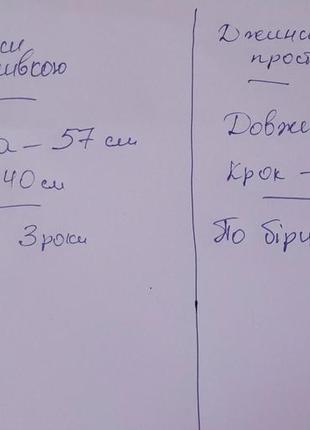 си
ивкою
а – 57 см
40 см
3 роки
Джинс
прост
Довжи
Крок –
По бірц